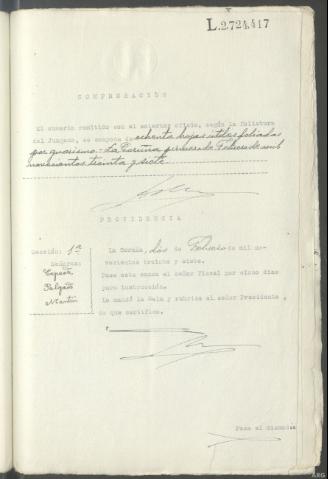 L.2.724.417
COMPROBACIÓN
El sumario remitido con el anterior oficio, según la Relatura
del Juzgado, se compone de ochenta hojas útiles foliadas
por guarismo. - La Coruña primero de Febrero de mil
novecientos treinta y siete.
PROVIDENCIA
Sección: 1ª
Señores:
Cepeda
Salgado
Martín
La Coruña, dos de Febrero de mil no-
vecientos treinta y siete.
Pase esta causa al señor Fiscal por cinco días
para instrucción.
Lo mandó la Sala y rubrica el señor Presidente,
de que certifico.
Pasa al
ARG